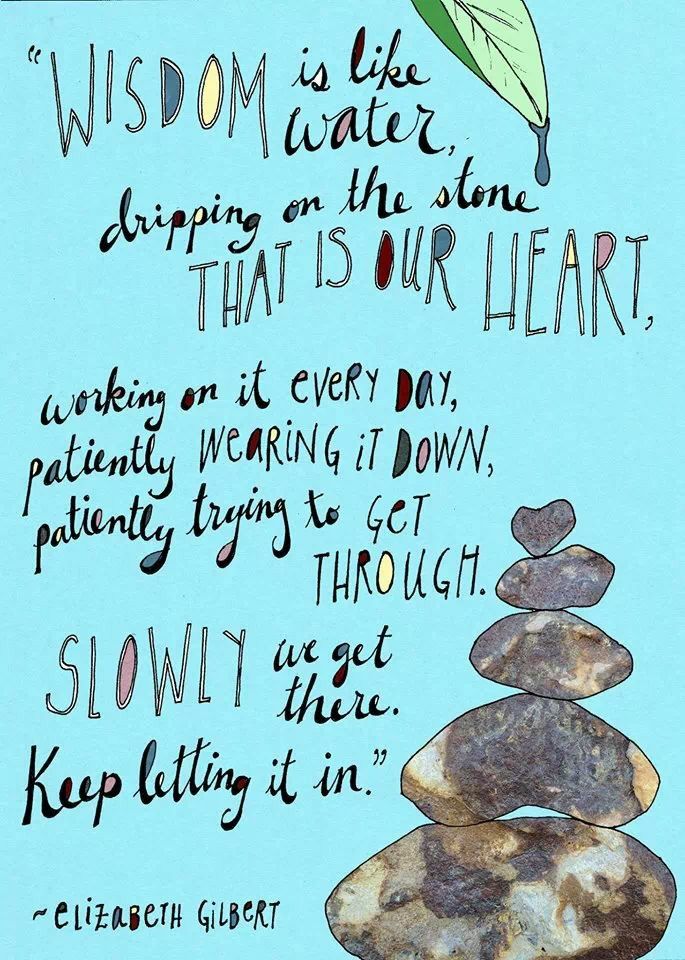 “WISDOM is like
water,
dripping on the stone
THAT IS OUR HEART,
working on it EVERY DAY,
patiently WEARING iT DOWN,
patiently trying to GET
THROUGH.
SLOWLY we get
there.
Keep letting it in.”
~ELIZABETH GILBERT